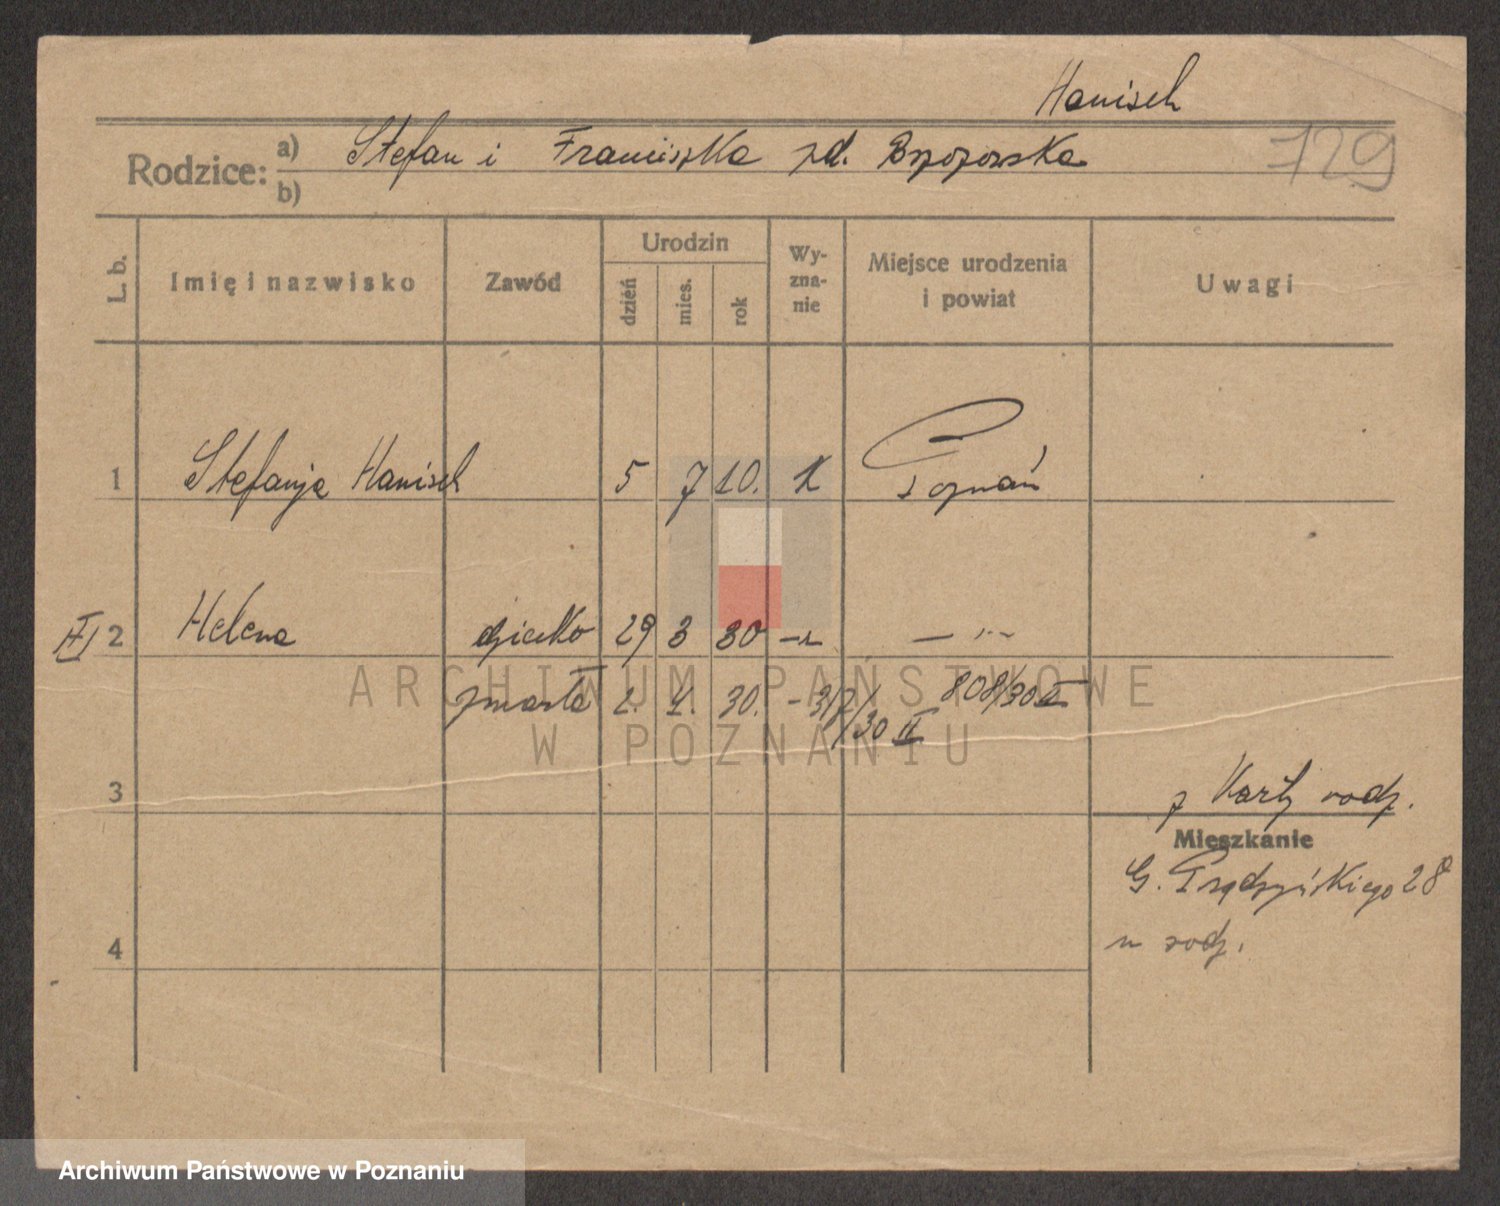 Hanisch
Rodzice: a) Stefan i Franciszka zd. Brzozowska 729
b)
L. b. Imię i nazwisko Zawód Urodzin dzień mies. rok Wyzna-nie Miejsce urodzenia i powiat Uwagi
1 Stefanja Hanisch 5 7 10. K Poznań
II 2 Helena dziecko 29 3 30 -„- - „ -
zmarła 2. 4. 30. 808/30 II
/30 II
ARCHIWUM PAŃSTWOWE
W POZNANIU
3 z Karty rodz.
Mieszkanie
G. Prądzyńskiego 28
u rodz.
4
Archiwum Państwowe w Poznaniu